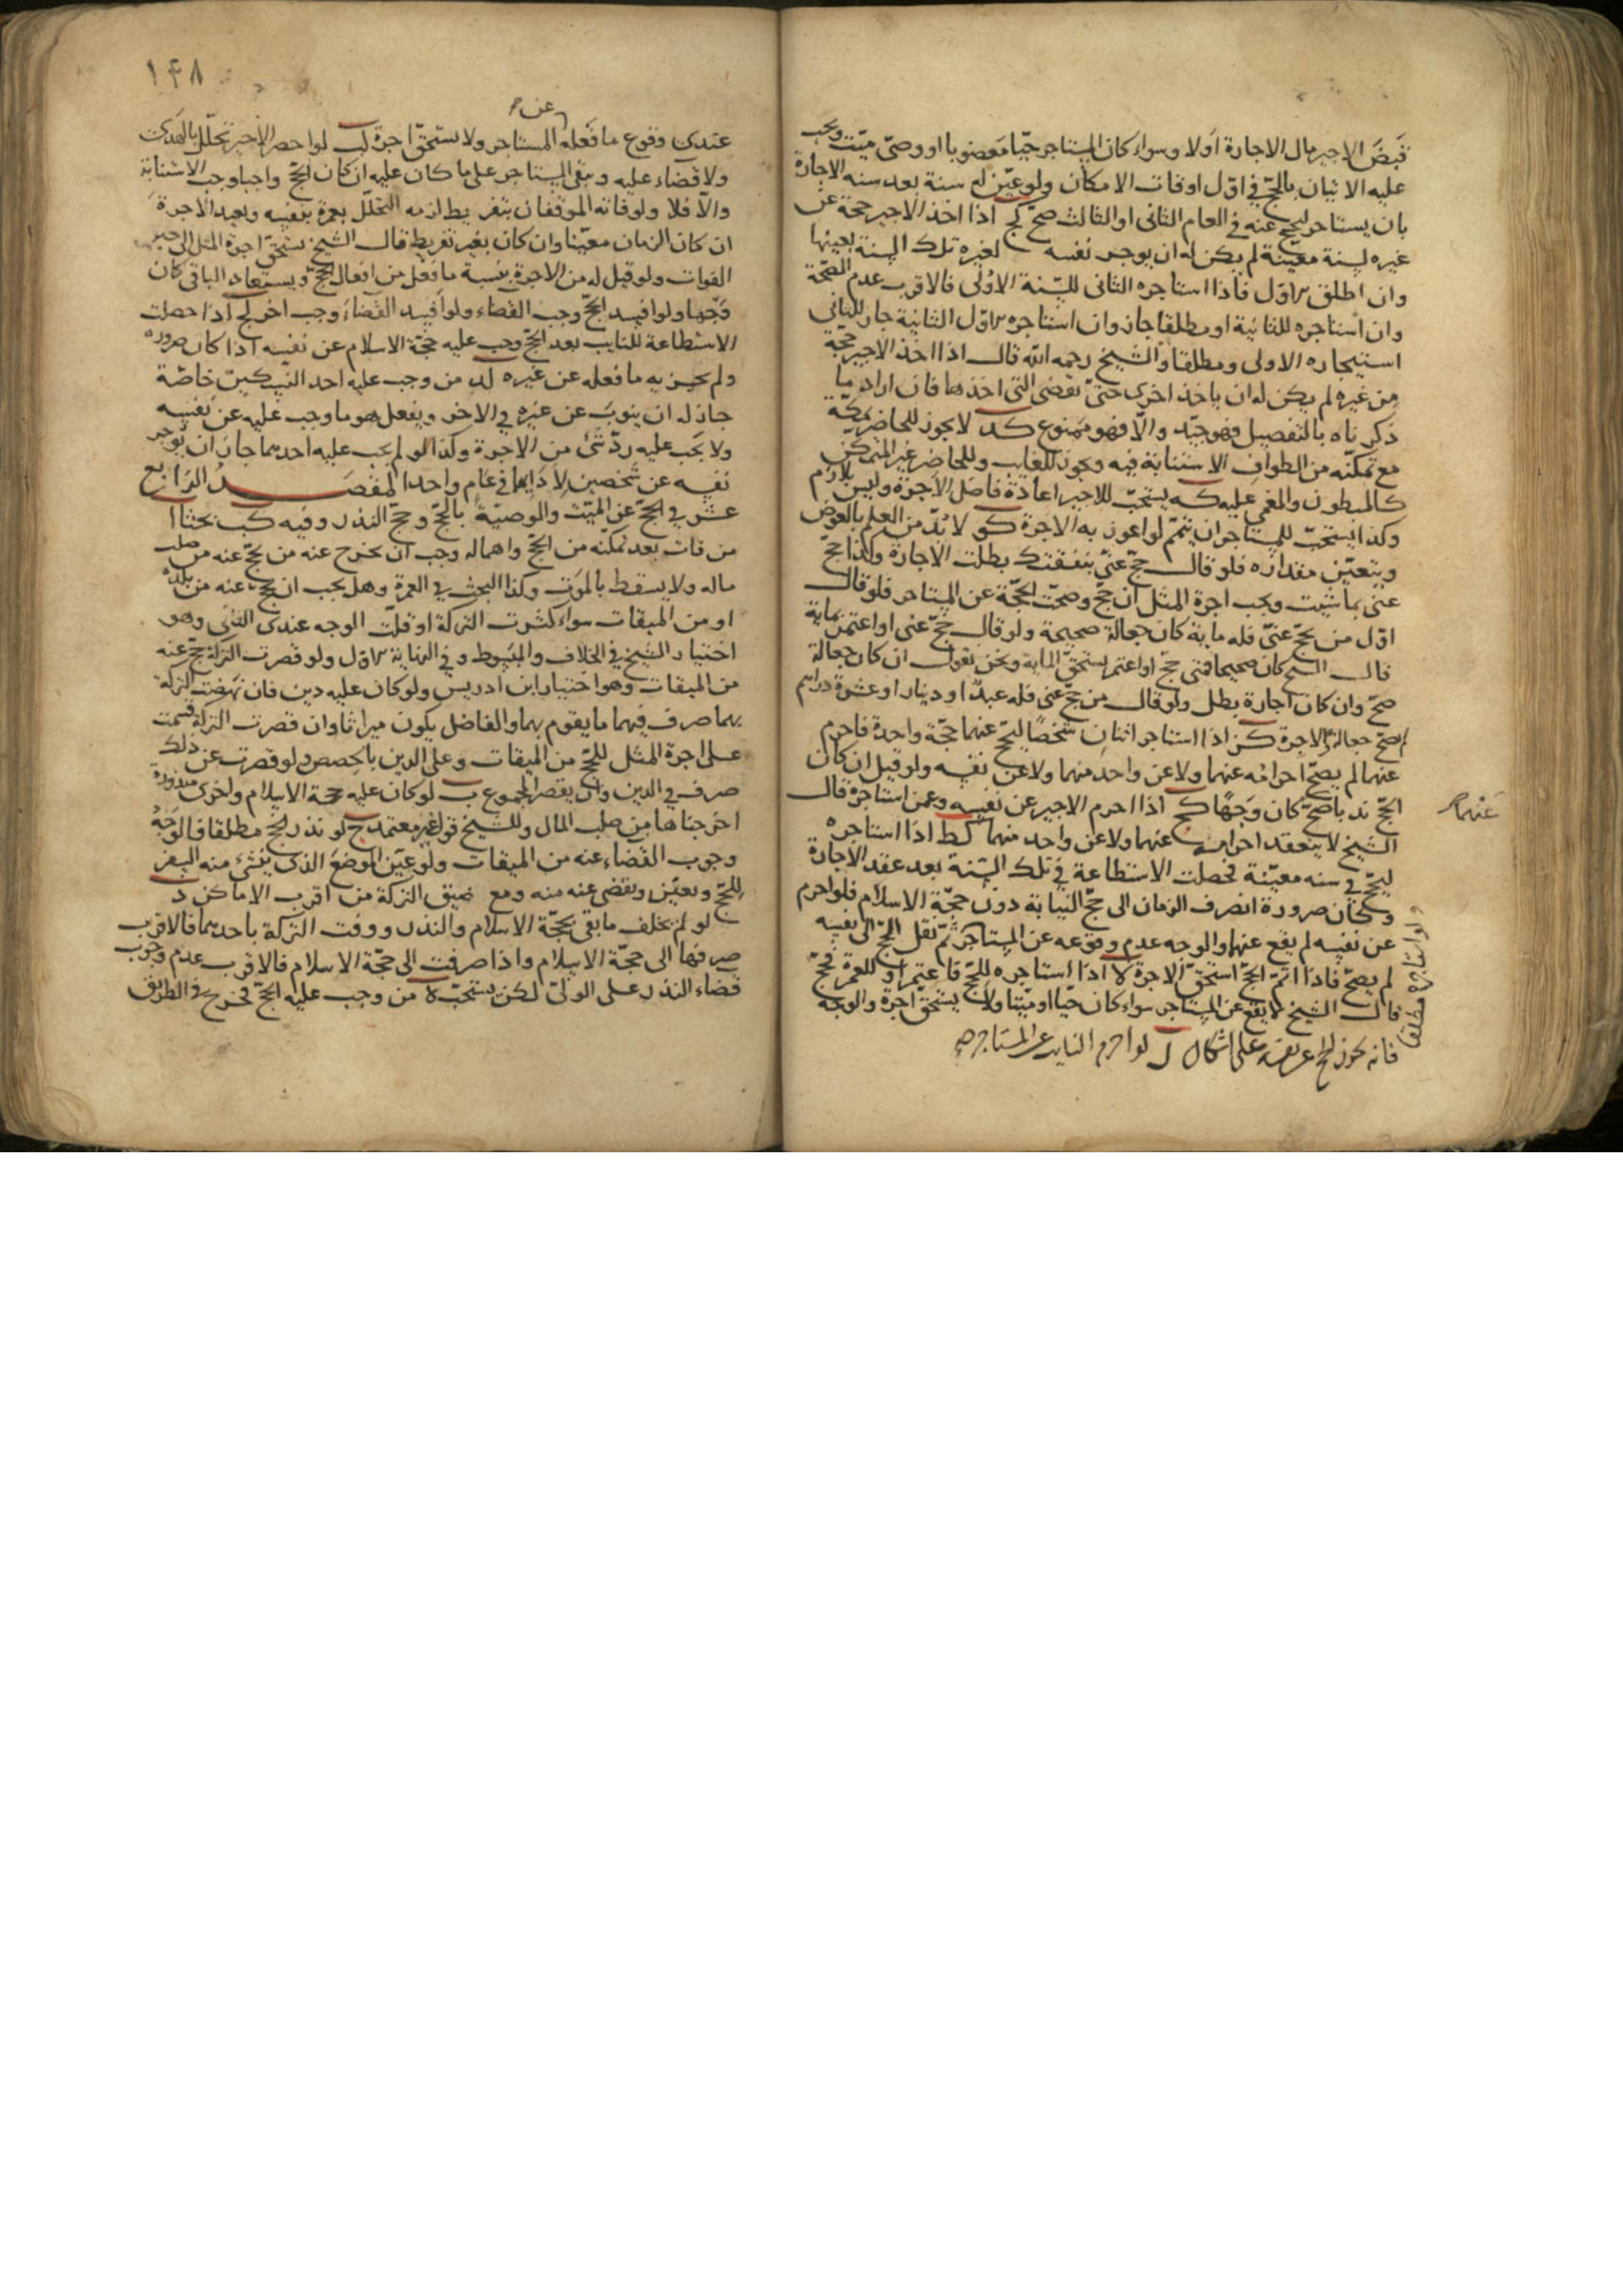 قبض الاجير مال الاجارة اولا وسواء كان المستاجر حيا معضوبا او وصى ميت ويجب
عليه الاتيان بالحج في اول اوقات الامكان ولو عين له سنة بعد سنه الاجارة
بان يستاجر ليحج عنه في العام الثاني او الثالث صح كج اذا اخذ الاجير حجة عن
غيره لسنة معينة لم يكن له ان يوجر نفسه لغيره تلك السنة بعينها
وان اطلق الاول فاذا استاجره الثاني للسنة الاولى فالاقرب عدم الصحة
وان استاجره للثانية او مطلقا جاز وان استاجره الاول الثانية جاز للثاني
استيجاره الاولى ومطلقا والشيخ رحمه الله قال اذا اخذ الاجير حجة
من غيره لم يكن له ان ياخذ اخرى حتى تقضى التي اخذها فان اراد ما
ذكرناه بالتفصيل فهو جيد والا فهو ممنوع كد لا يجوز للحاضر بمكة
مع تمكنه من الطواف الاستنابة فيه ويجوز للغايب وللحاضر غير المتمكن
كالمبطون والمغمى عليه كه يستحب للاجير اعادة فاضل الاجرة وليس بلازم
وكذا يستحب للمستاجر ان يتمم لو اعوز به الاجرة كو لا بد من العلم بالعوض
ويتعين مقداره فلو قال حج عني بنفقتك بطلت الاجارة وكذا حج
عني بما شيت ويجب اجرة المثل ان حج وصحت الحجة عن المستاجر فلو قال
اول من يحج عني فله ماية كان جعالة صحيحة ولو قال حج عني او اعتمر بماية
قال الشيخ كان صحيحا فمتى حج او اعتمر يستحق الماية ونحن نقول ان كان جعالة
صح وان كان اجارة بطل ولو قال من حج عني فله عبد او دينار او عشرة دراهم
لم يصح جعالة والاجرة كز اذا استاجر اثنان شخصا ليحج عنهما حجة واحدة فاحرم
عنهما لم يصح احرامه عنهما ولا عن واحد منهما ولا عن نفسه ولو قيل ان كان
الحج ندبا صح كان وجها كح اذا احرم الاجير عن نفسه وعمن استاجره قال
عنهما
الشيخ لا ينعقد احرامه عنهما ولا عن واحد منهما كط اذا استاجره
ليحج في سنه معينة فحصلت الاستطاعة في تلك السنة بعد عقد الاجارة
وكان صرورة انصرف الزمان الى حج النيابة دون حجة الاسلام فلو احرم
عن نفسه لم يقع عنهما والوجه عدم وقوعه عن المستاجر ثم نقل الحج الى نفسه
لم يصح فاذا اتم الحج استحق الاجرة لا اذا استاجره للحج فاعتمر او للعمرة فحج
قال الشيخ لا يقع عن المستاجر سواء كان حيا او ميتا ولا يستحق اجرة والوجه
ولو استاجره مطلقا
فانه يجوز الحج عن نفسه على اشكال ل لو احرم النايب عن المستاجر صح
١٤٨
عن
عندى وقوع ما فعله المستاجر ولا يستحق اجرة لب لو احصر الاجير تحلل بالهدى
ولا قضاء عليه ويبقى المستاجر على ما كان عليه ان كان الحج واجبا وجب الاستنابة
والا فلا ولو فاته الموقفان بتفريط لزمه التحلل بعمرة بنفسه ويعيد الاجرة
ان كان الزمان معينا وان كان بغير تفريط قال الشيخ يستحق اجرة المثل الى حين
الفوات ولو قيل له من الاجرة بنسبة ما فعل من افعال الحج ويستعاد الباقي كان
وجها ولو افسد الحج وجب القضاء ولو افسد القضاء وجب اخر لج اذا حصلت
الاستطاعة للنايب بعد الحج وجب عليه حجة الاسلام عن نفسه اذا كان صروره
ولم يجزيه ما فعله عن غيره لد من وجب عليه احد النسكين خاصة
جاز له ان ينوب عن غيره في الاخر ويفعل هو ما وجب عليه عن نفسه
ولا يجب عليه رد شئ من الاجرة وكذا لو لم يجب عليه احدهما جاز ان يوجر
نفسه عن شخصين لادايهما في عام واحد المقصد الرابع
عشر في الحج عن الميت والوصية بالحج وحج النذر وفيه كب بحثا ا
من فات بعد تمكنه من الحج واهماله وجب ان يخرج عنه من يحج عنه من صلب
ماله ولا يسقط بالموت وكذا البحث في العمرة وهل يجب ان يحج عنه من بلده
او من الميقات سواء كثرت التركة او قلت الوجه عندى الثاني وهو
اختيار الشيخ في الخلاف والمبسوط وفي النهاية الاول ولو قصرت التركة حج عنه
من الميقات وهو اختيار ابن ادريس ولو كان عليه دين فان نهضت التركة
بهما صرف فيهما ما يقوم بهما والفاضل يكون ميراثا وان قصرت التركة قسمت
على اجرة المثل للحج من الميقات وعلى الدين بالحصص ولو قصرت عن ذلك
صرف في الدين وان يقصر المجموع ب لو كان عليه حجة الاسلام واخرى منذورة
اخرجناها من صلب المال وللشيخ قول غير معتمد ج لو نذر الحج مطلقا فالوجه
وجوب القضاء عنه من الميقات ولو عين الموضع الذى ينشئ منه السفر
للحج وتعين ويقضى عنه منه ومع ضيق التركة من اقرب الاماكن د
لو لم يخلف ما يفي بحجة الاسلام والنذر ووفت التركة باحدهما فالاقرب
صرفها الى حجة الاسلام واذا صرفت الى حجة الاسلام فالاقرب عدم وجوب
قضاء النذر على الولى لكن يستحب ه من وجب عليه الحج فخرج في الطريق